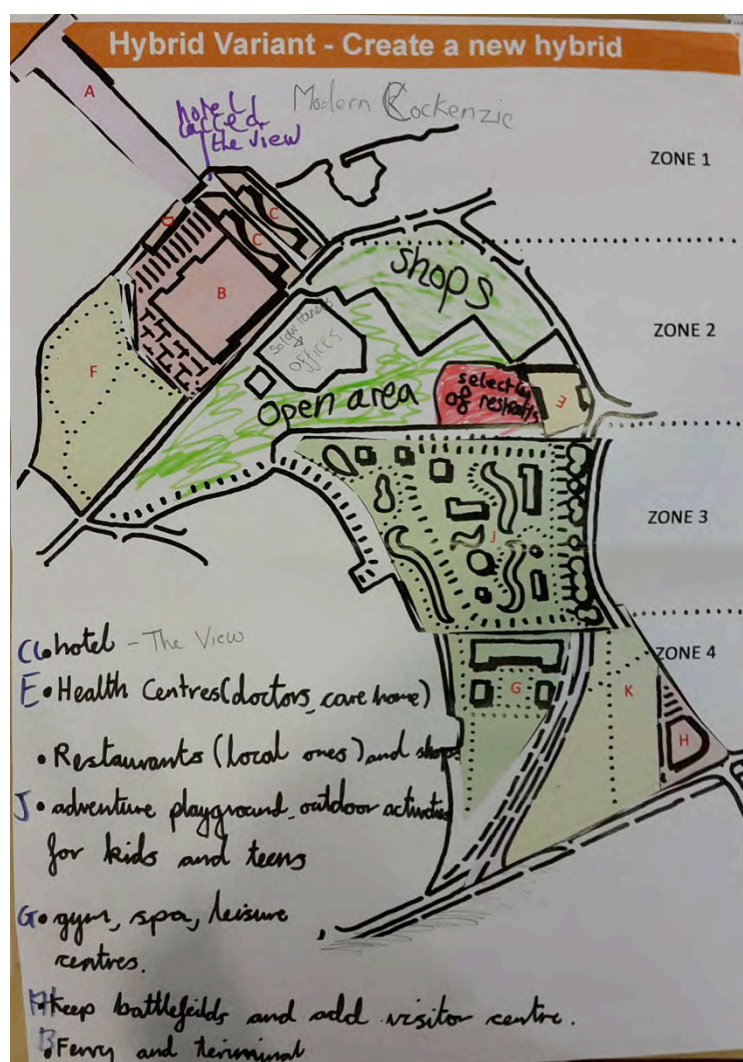 Hybrid Variant - Create a new hybrid
A
hotel
called
the view
Modern Cockenzie
ZONE 1
C
C
D
B
shops
ZONE 2
F
Solar Panels
offices
Open area
selection
of restraunts
E
ZONE 3
J
CC • hotel - The View
ZONE 4
E • Health Centres (doctors, care home)
G
K
H
• Restaurants (local ones) and shops
J • adventure playground, outdoor activities
for kids and teens
G • gym, spa, leisure
centres.
H • Keep battlefeilds and add visitor centre.
B • Ferry and terminal